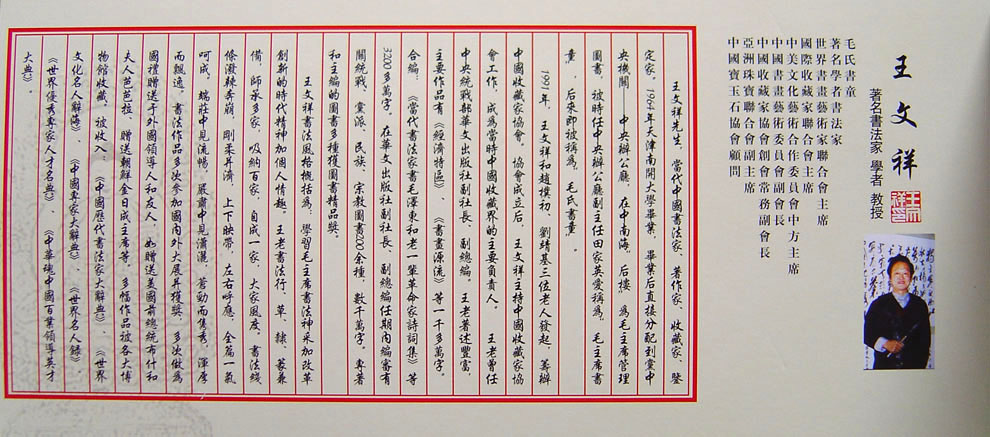 王文祥
著名書法家 學者 教授
毛氏書童
著名學者書法家
世界書畫藝術家聯合會主席
國際收藏家聯合會主席
中美文化藝術合作委員會中方主席
中國書畫藝術委員會副會長
中國收藏家協會創會常務副會長
亞洲珠寶聯合會副主席
中國寶玉石協會顧問
王文祥先生，當代中國書法家、著作家、收藏家、鑒
定家。1964年天津南開大學畢業，畢業后直接分配到黨中
央機關——中央辦公廳，在中南海，后樓，爲毛主席管理
圖書，被時任中央辦公廳副主任田家英愛稱爲，毛主席書
童，后來即被稱爲，毛氏書童。
1991年，王文祥和趙樸初、劉靖基三位老人發起，籌辦
中國收藏家協會。協會成立后，王文祥主持中國收藏家協
會工作，成爲當時中國收藏界的主要負責人。王老曾任
中央統戰部華文出版社副社長、副總編。王老著述豐富，
主要作品有《經濟特區》、《書畫源流》等一千多萬字。
合編：《當代書法家書毛澤東和老一輩革命家詩詞集》等
3200多萬字。在華文出版社副社長、副總編任期内編審有
關統戰、黨派、民族、宗教圖書200余種，數千萬字。專著
和主編的圖書多種獲圖書精品獎。
王文祥書法風格概括爲：學習毛主席書法神采加改革
創新的時代精神加個人情趣。王老書法行、草、隸、篆兼
備，師承多家，吸納百家，自成一家，大家風度。書法綫
條潑辣奔崩，剛柔并濟，上下映帶，左右呼應，全篇一氣
呵成，端莊中見流暢，嚴肅中見瀟灑，蒼勁而雋秀，渾厚
而飄逸。書法作品多次參加國內外大展并獲獎，多次做爲
國禮贈送于外國領導人和友人，如贈送美國前總統布什和
夫人芭芭拉，贈送朝鮮金日成主席等。多幅作品被各大博
物館收藏，被收入：《中國歷代書法家大辭典》、《世界
文化名人辭海》、《中國專家大辭典》、《世界名人錄》、
《世界優秀專家人才名典》、《中華魂中國百業領導英才
大典》。